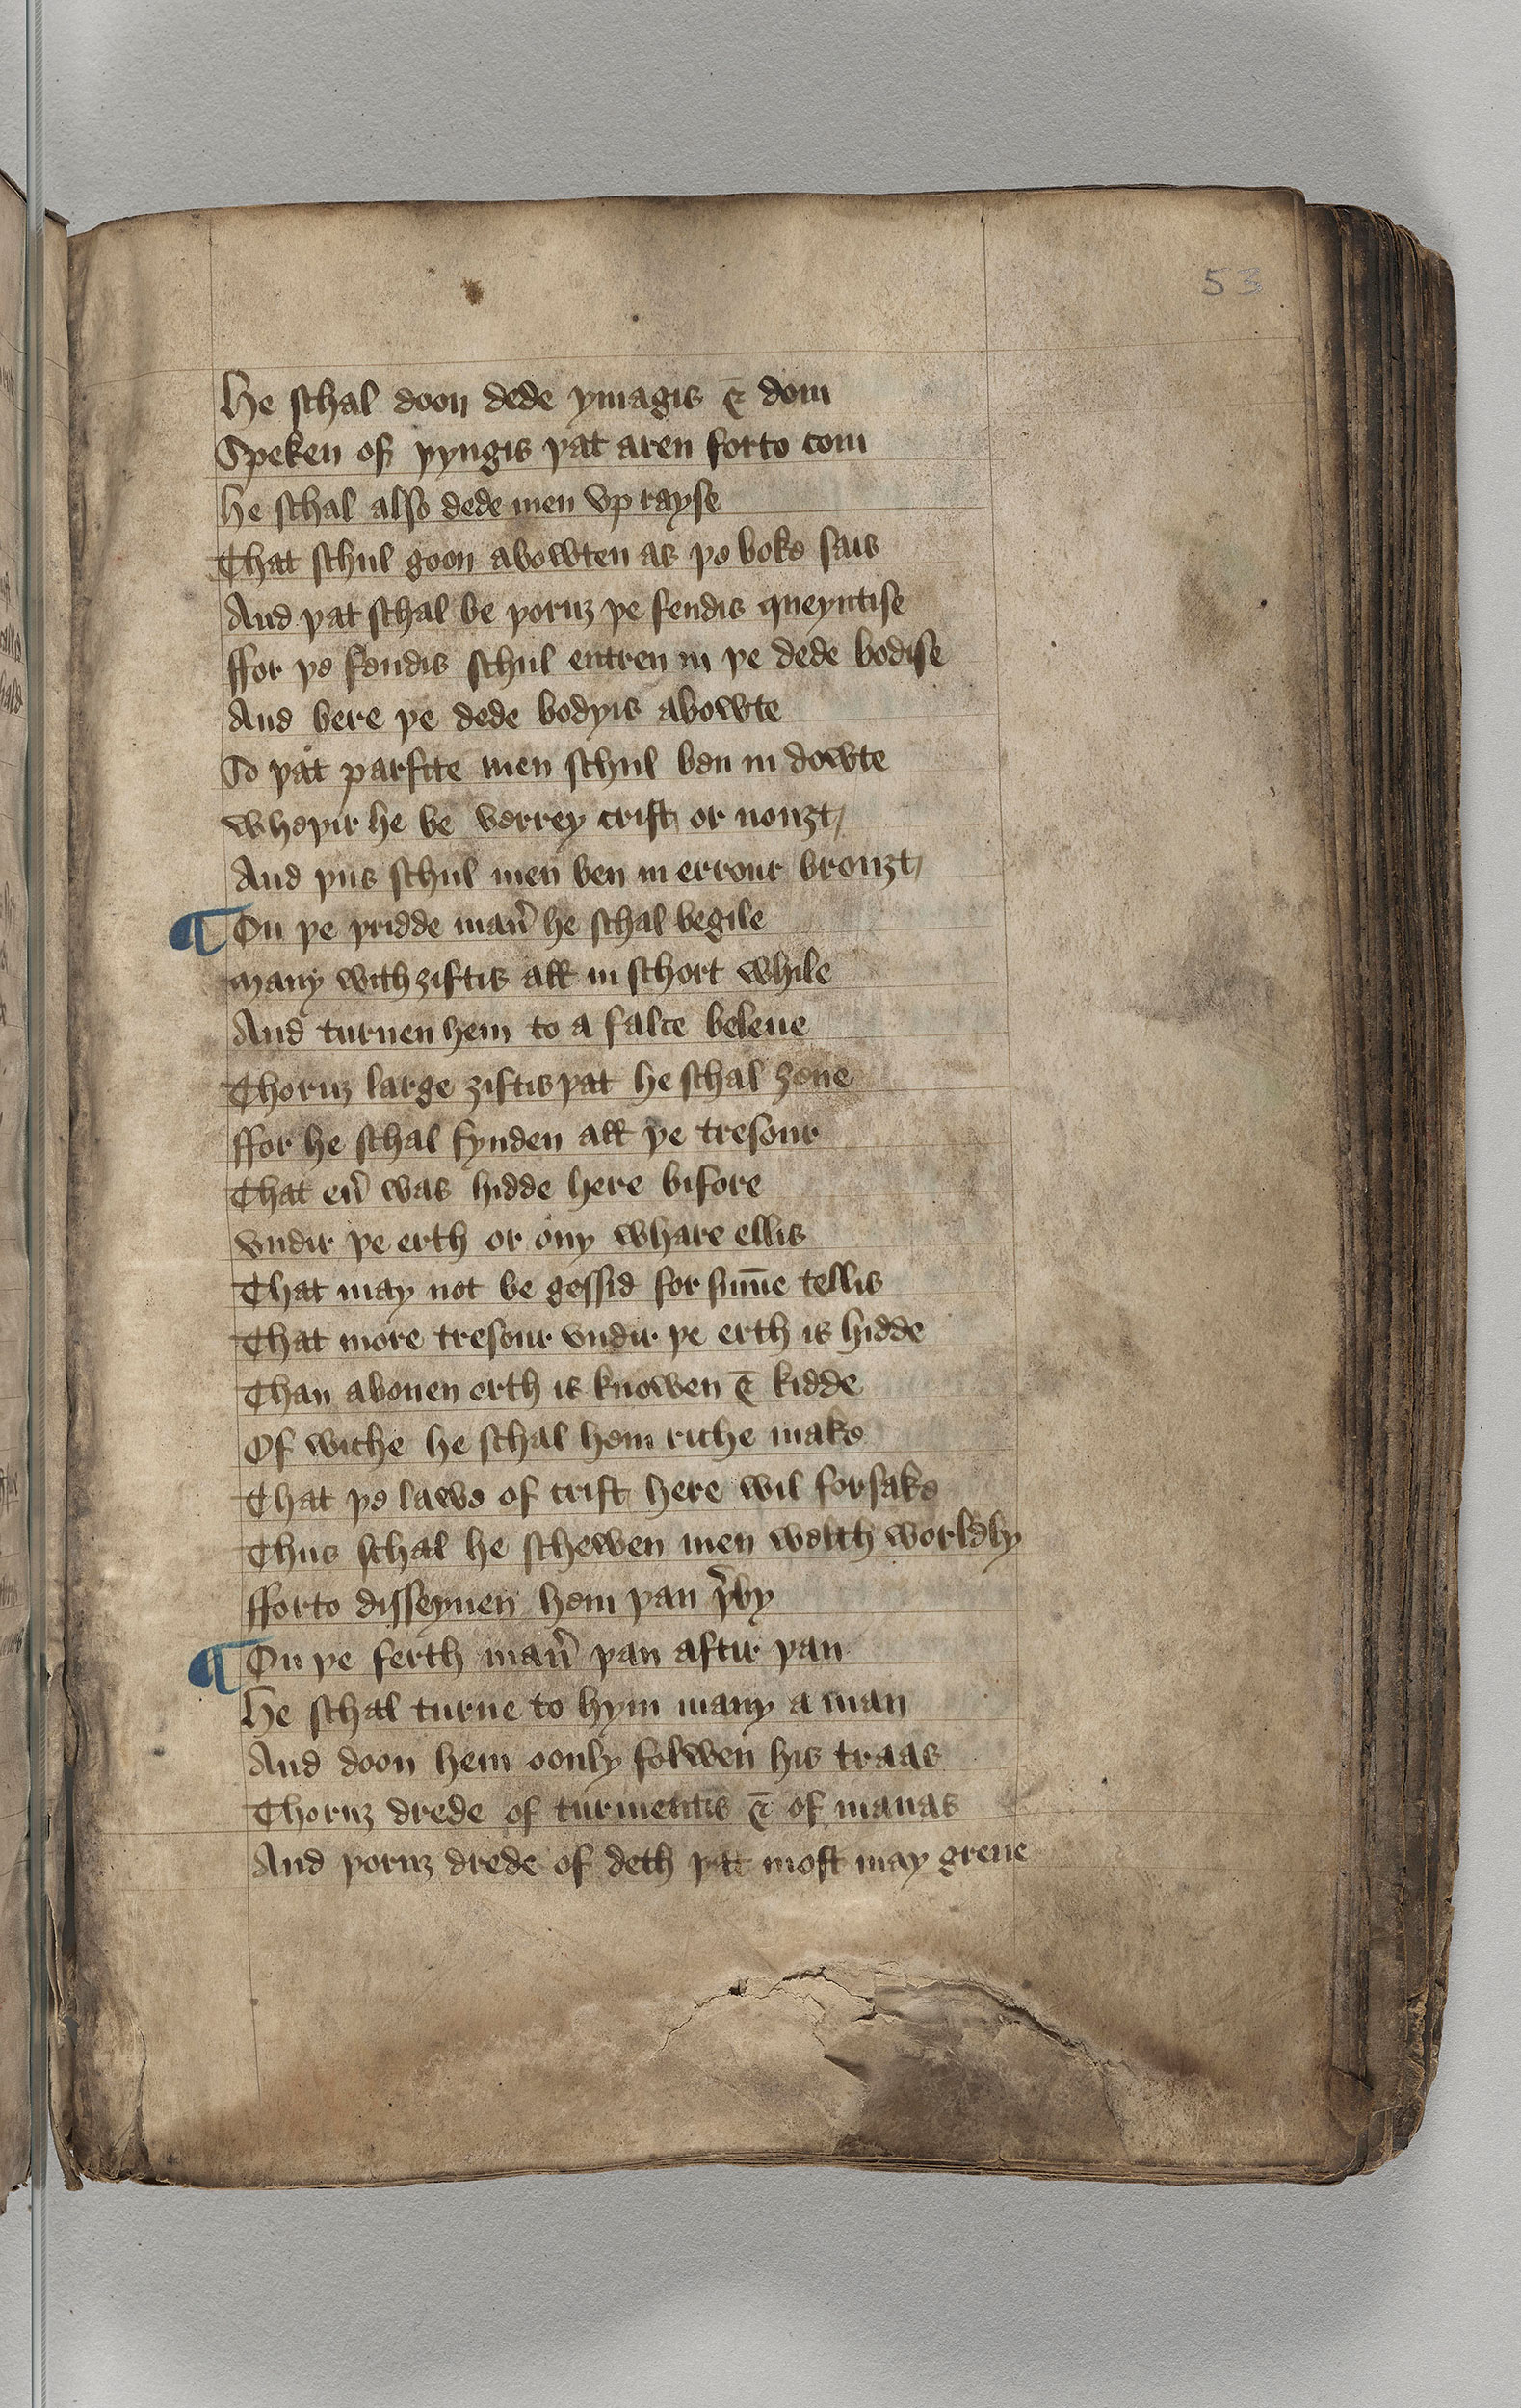 53
He schal doon dede ymagis & dom
Speken of þyngis þat aren forto com
He schal also dede men vp rayse
That schul goon abowten as þe boke sais
And þat schal be þoruȝ þe fendis queyntise
ffor þe fendis schul entren in þe dede bodise
And bere þe dede bodyis abowte
So þat parfite men schul ben in dowte
Wheþir he be verrey crist or nouȝt
And þus schul men ben in errour brouȝt
¶ On þe þridde man̉ he schal begile
Many with ȝiftis all in schort while
And turnen hem to a falce beleue
Thoruȝ large ȝiftis þat he schal ȝeue
ffor he schal fynden all þe tresour
That eủ was hidde here bifore
Vndir þe erth or ony whare ellis
That may not be gessid for sum̄e tellis
That more tresour vndir þe erth is hidde
Than abouen erth is knowen & kidde
Of wiche he schal hem riche make
That þe lawe of crist here wil forsake
Thus schal he schewen men welth worldly
fforto disseyuen hem þan þ̉by
¶ On þe ferth man̉ þan aftir þan
He schal turne to hym many a man
And doon hem oonly folwen his traas
Thoruȝ drede of turmentis & of manas
And þoruȝ drede of deth þat most may greue